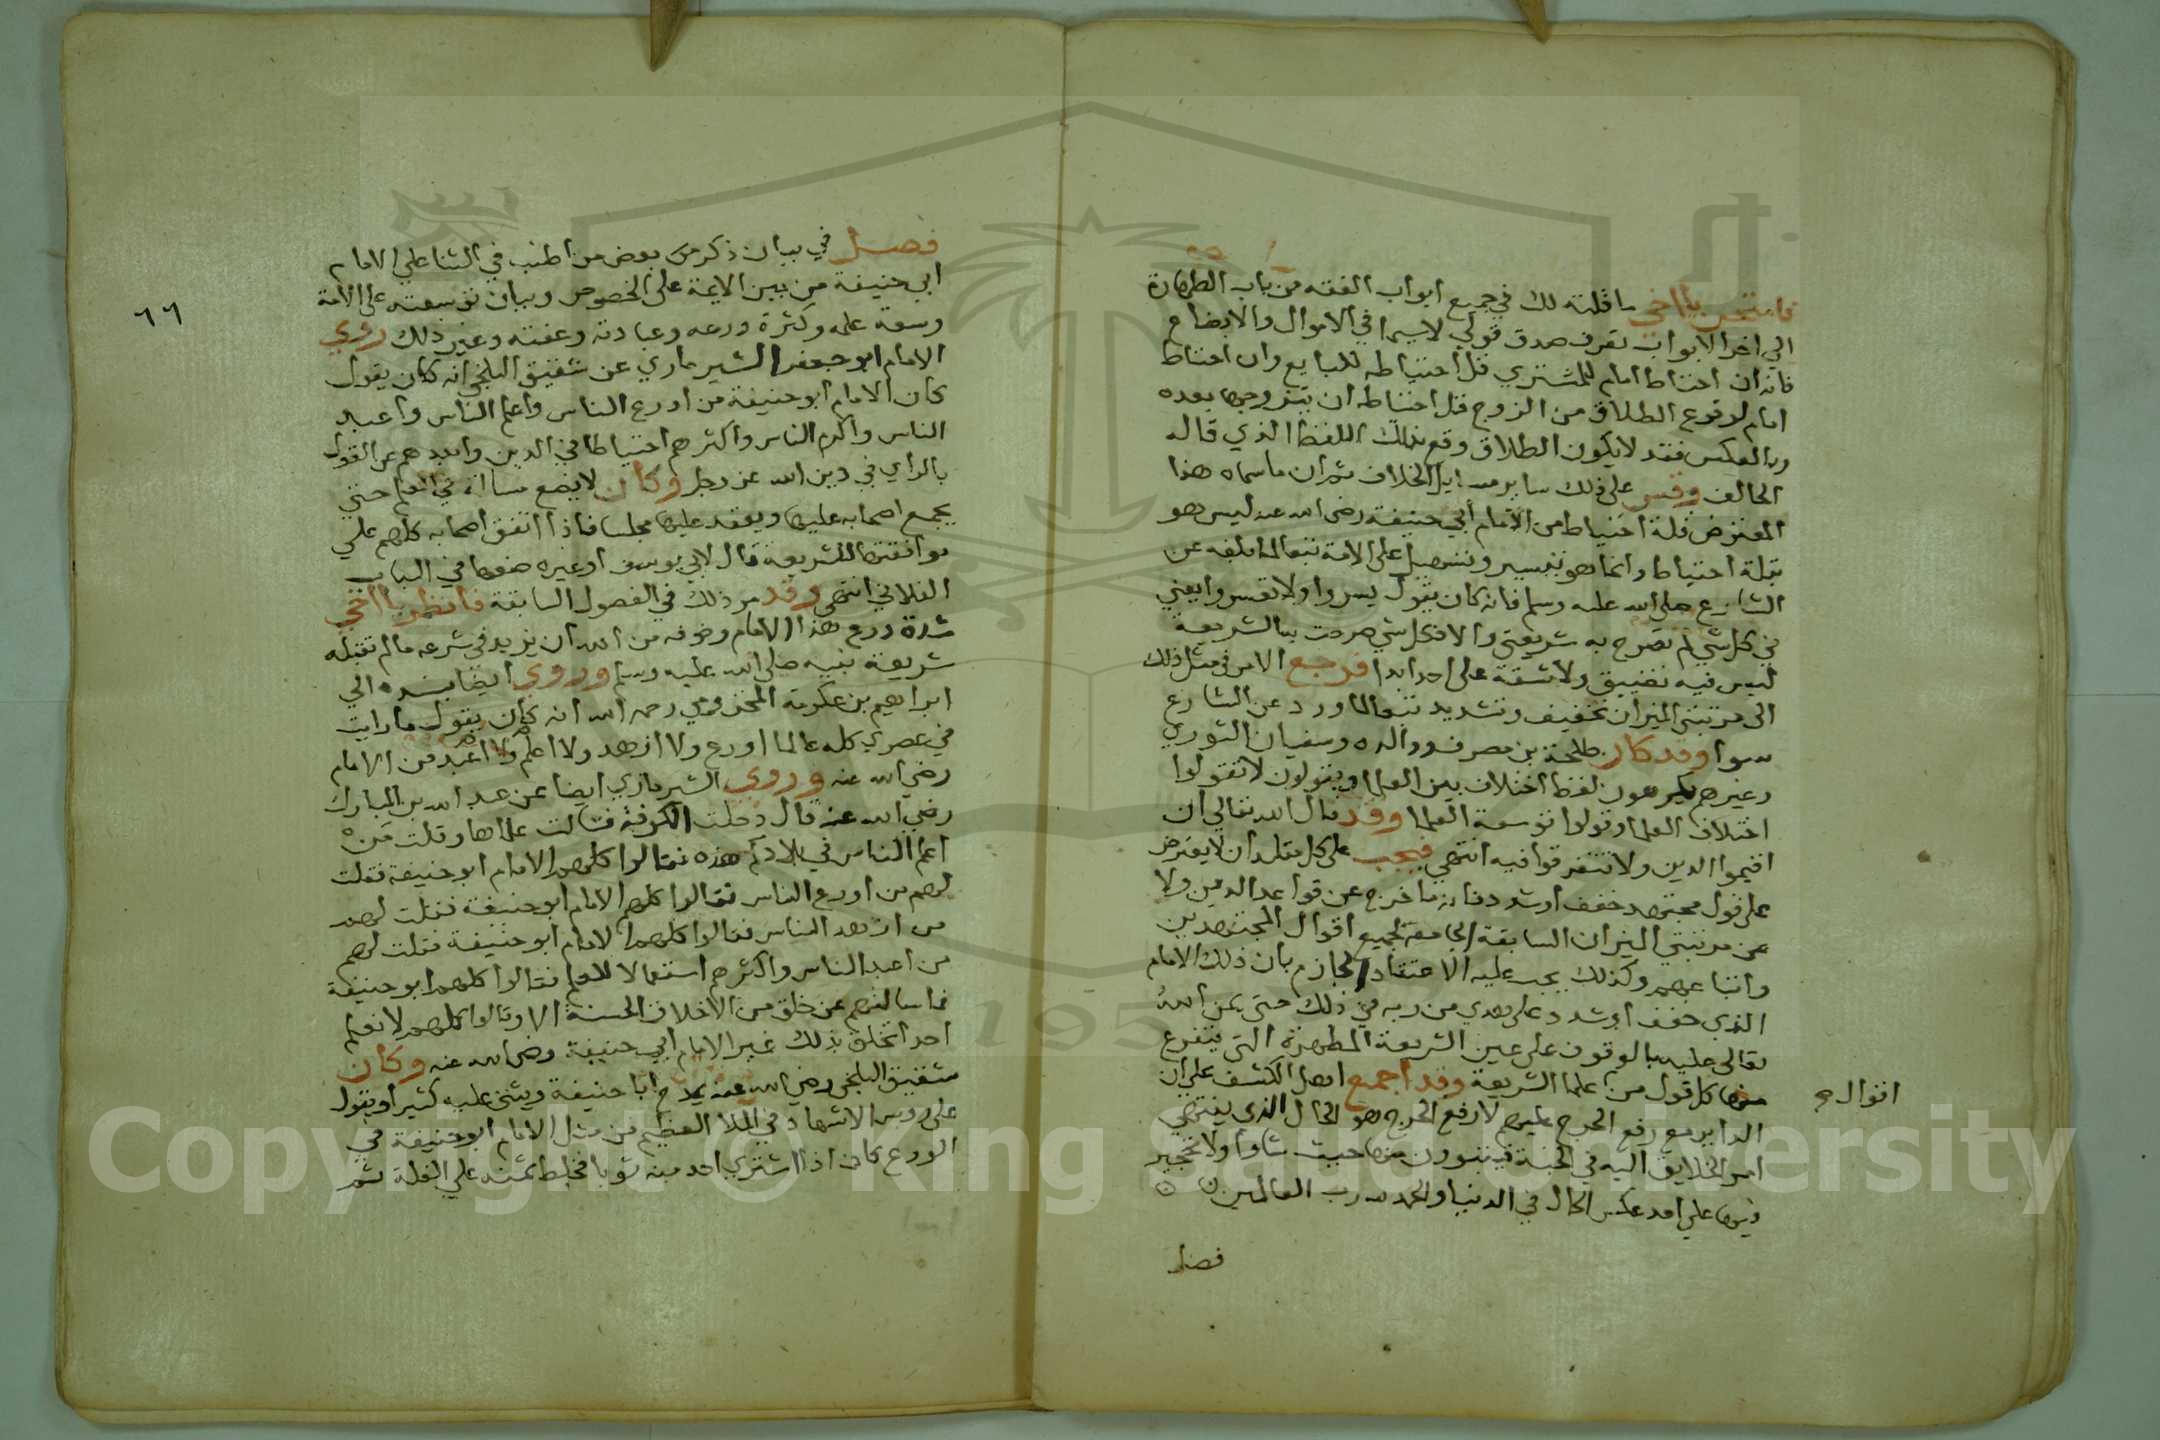 فامتحن يا اخي ما قلته لك في جميع ابواب الفقه من باب الطهارة
الي اخر الابواب تعرف صدق قولي لاسيما في الاموال والابضاع
فانه ان احتاط امام للمشتري قل احتياطه للبايع وان احتاط
امام لوقوع الطلاق من الزوج قل احتياطه ان يتزوجها بعده
وبالعكس فقد لا يكون الطلاق وقع بذلك اللفظ الذي قاله
الحالف وقس علي ذلك ساير مسايل الخلاف ثم ان ما سماه هذا
المعترض قلة احتياط من الامام ابي حنيفة رضي الله عنه ليس هو
بقلة احتياط وانما هو تيسير وتسهيل علي الامة تبعا لما بلغه عن
الشارع صلي الله عليه وسلم فانه كان يقول يسروا ولا تعسروا يعني
في كل شي لم تصرح به شريعتي والا فكل شي صرحت به الشريعة
ليس فيه تضييق ولا مشقة علي احد ابدا فرجع الامر في مثل ذلك
الي مرتبتي الميزان تخفيف وتشديد تبعا لما ورد عن الشارع
سوا وقد كان طلحة بن مصرف ووالده وسفيان الثوري
وغيرهم يكرهون لفظ اختلاف بين العلما ويقولون لا تقولوا
اختلاف العلما وقولوا توسعة العلما وقد قال الله تعالي ان
اقيموا الدين ولا تتفرقوا فيه انتهي فيجب علي كل مقلد ان لا يعترض
علي قول مجتهد خفف او شدد فانه ما خرج عن قواعد الدين ولا
عن مرتبتي الميزان السابقة الجامعة لجميع اقوال المجتهدين
واتباعهم وكذلك يجب عليه الاعتقاد الجازم بان ذلك الامام
الذي خفف او شدد علي هدي من ربه في ذلك حتي يمن الله
تعالي عليه بالوقوف علي عين الشريعة المطهرة التي يتفرع
منها كل قول من علما الشريعة وقد اجمع اهل الكشف علي ان
اقوال
الداير مع رفع الحرج عليهم لا رفع الحرج هو الحال الذي ينتهي
امر الخلايق اليه في الجنة فيتبوون منها حيث شاوا ولا تحجير
فيها علي احد عكس الحال في الدنيا والحمد لله رب العالمين
فصل
٦٦
فصل في بيان ذكر من بعض من اطنب في الثنا علي الامام
ابي حنيفة من بين الايمة علي الخصوص وبيان توسعته علي الامة
وسعة علمه وكثرة ورعه وعبادته وعفته وغير ذلك روي
الامام ابو جعفر الشيرماري عن شقيق البلخي انه كان يقول
كان الامام ابو حنيفة من اورع الناس واعلم الناس واعبد
الناس واكرم الناس واكثرهم احتياطا في الدين وابعدهم عن القول
بالراي في دين الله عز وجل وكان لا يضع مسالة في العلم حتي
يجمع اصحابه عليها ويعقد عليها مجلسا فاذا اتفق اصحابه كلهم علي
موافقتها للشريعة قال لابي يوسف او غيره ضعها في الباب
الفلاني انتهي وقد مر ذلك في الفصول السابقة فانظر يا اخي
شدة ورع هذا الامام وخوفه من الله ان يزيد في شرعه ما لم تقبله
شريعة نبيه صلي الله عليه وسلم وروي ايضا بسنده الي
ابراهيم بن عكرمة المخزومي رحمه الله انه كان يقول ما رايت
في عصري كله عالما اورع ولا ازهد ولا اعلم ولا اعبد من الامام
رضي الله عنه وروي الشيرمازي ايضا عن عبد الله بن المبارك
رضي الله عنه قال دخلت الكوفة فسالت علماها وقلت من
اعلم الناس في بلادكم هذه فقالوا كلهم الامام ابو حنيفة فقلت
لهم من اورع الناس فقالوا كلهم الامام ابو حنيفة فقلت لهم
من ازهد الناس فقالوا كلهم الامام ابو حنيفة فقلت لهم
من اعبد الناس واكثرهم اشتغالا للعلم فقالوا كلهم ابو حنيفة
فما سالتهم عن خلق من الاخلاق الحسنة الا وقالوا كلهم لا نعلم
احدا تخلق بذلك غير الامام ابي حنيفة رضي الله عنه وكان
شقيق البلخي رضي الله عنه يمدح ابا حنيفة ويثني عليه كثيرا ويقول
علي روس الاشهاد في الملا العظيم من مثل الامام ابو حنيفة في
الورع كان اذا اشتري احد منه ثوبا فخلط ثمنه علي الغلة ثم
Copyright © King Saud University
195